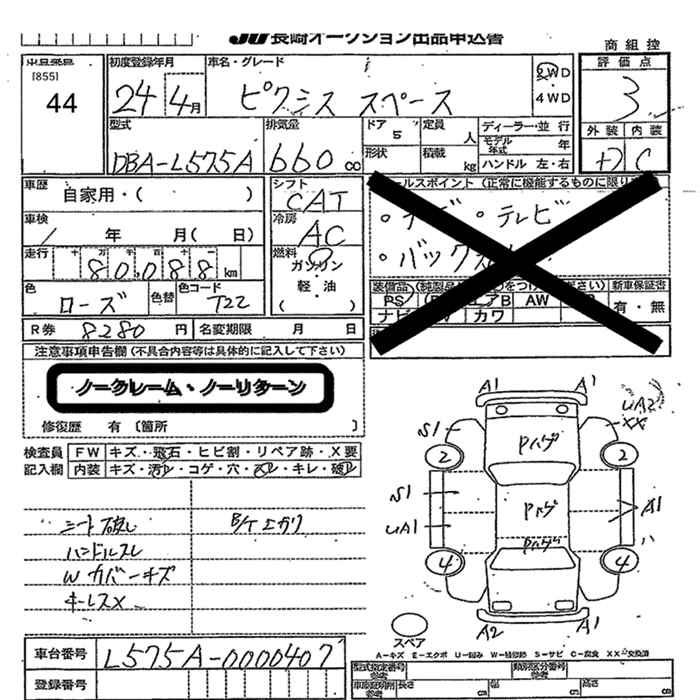 JU長崎オークション出品申込書
商 組 控
出品番号
[855]
44
初度登録年月
24年4月
車名・グレード
ピクシス スペース
2WD
・
4WD
評 価 点
3
外 装 内 装
+7 C
型式
DBA-L575A
排気量
660 cc
ドア 5
定員 人
形状
積載 kg
ディーラー・並 行
モデル年式 年
ハンドル 左・右
車歴
自家用・( )
シフト
CAT
車検
年 月( 日)
冷房
AC
走行
十 万 千 百 十 一
80,088 km
燃料
ガソリン
・
軽・油
( )
色
ローズ
色替
色コード
T22
R券 8280 円
名変期限 月 日
セールスポイント (正常に機能するものに限り)
・ナビ ・テレビ
・バック
装備品
PS
エアB AW
ナビ
カワ
新車保証書
有・無
注意事項申告欄 (不具合内容等は具体的に記入して下さい)
ノークレーム・ノーリターン
修復歴 有 〔箇所 〕
検査員
記入欄
FW キズ・飛石・ヒビ割・リペア跡・X要
内装 キズ・汚レ・コゲ・穴・スレ・キレ・破レ
シート破レ
B/T エガリ
ハンドルスレ
W カバーキズ
キーレスX
A1 A1
UA2
XX
S1
Pハゲ
2 2
S1
Pハゲ
A1
UA1
Pハゲ
4 4
A2 A1
スペア
A−キズ E−エクボ U−凹み W−補修跡 S−サビ C−腐食 XX−交換済
車台番号
L575A-0000407
登録番号
型式指定番号
参考
類別区分番号
参考
車庫証明用
参考
長さ
幅
高さ